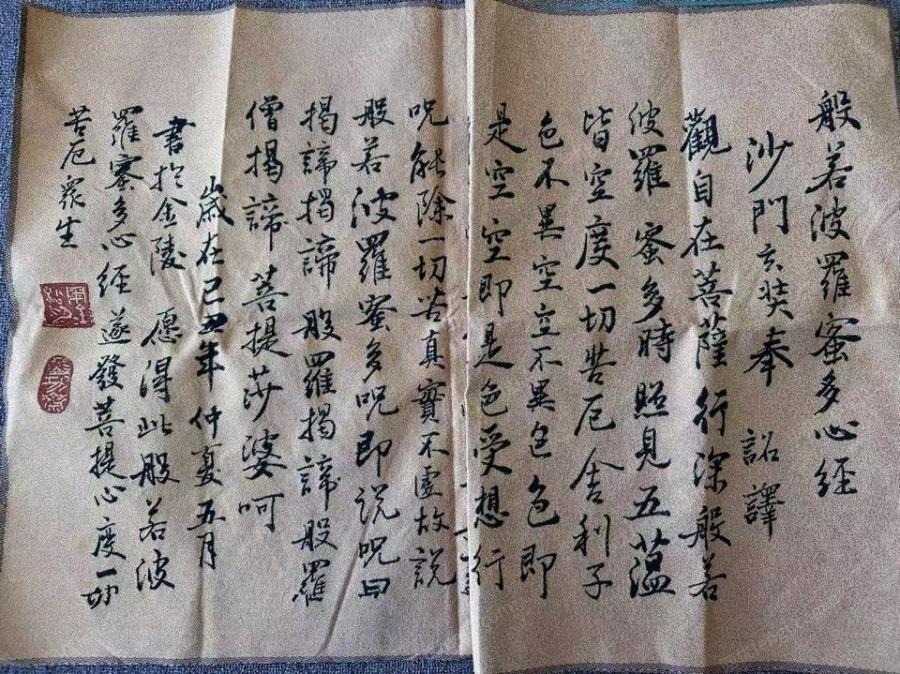 般若波羅蜜多心經
沙門玄奘奉 詔譯
觀自在菩薩行深般若
波羅蜜多時照見五蕰
皆空度一切苦厄舍利子
色不異空空不異色色即
是空空即是色受想行
呪能除一切苦真實不虛故說
般若波羅蜜多呪即說呪曰
揭諦揭諦般羅揭諦般羅
僧揭諦 菩提莎婆呵
歲在己丑年仲夏五月
書於金陵 愿得此般若波
羅蜜多心經遂發菩提心度一切
苦厄眾生